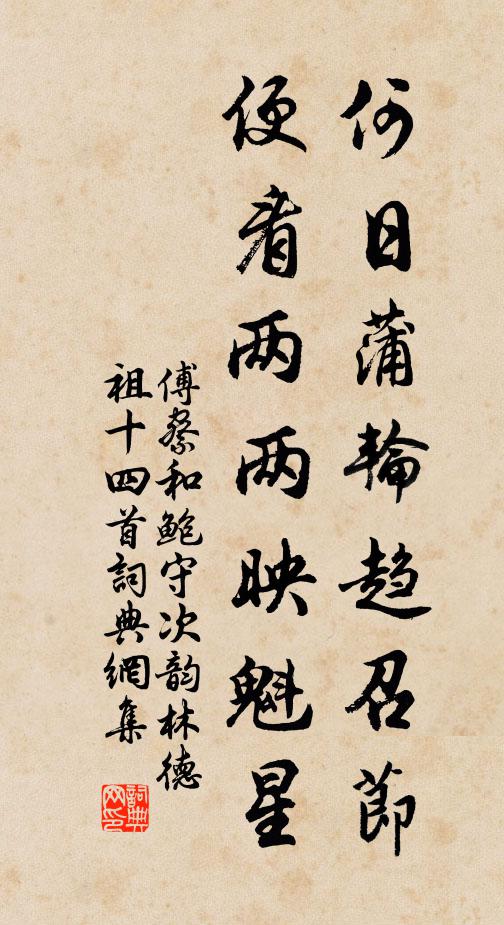 何日蒲輪趋召節
便看两两映魁星
傅察和鮑守次韵林德
祖十四首詞典網集
詞典
网印